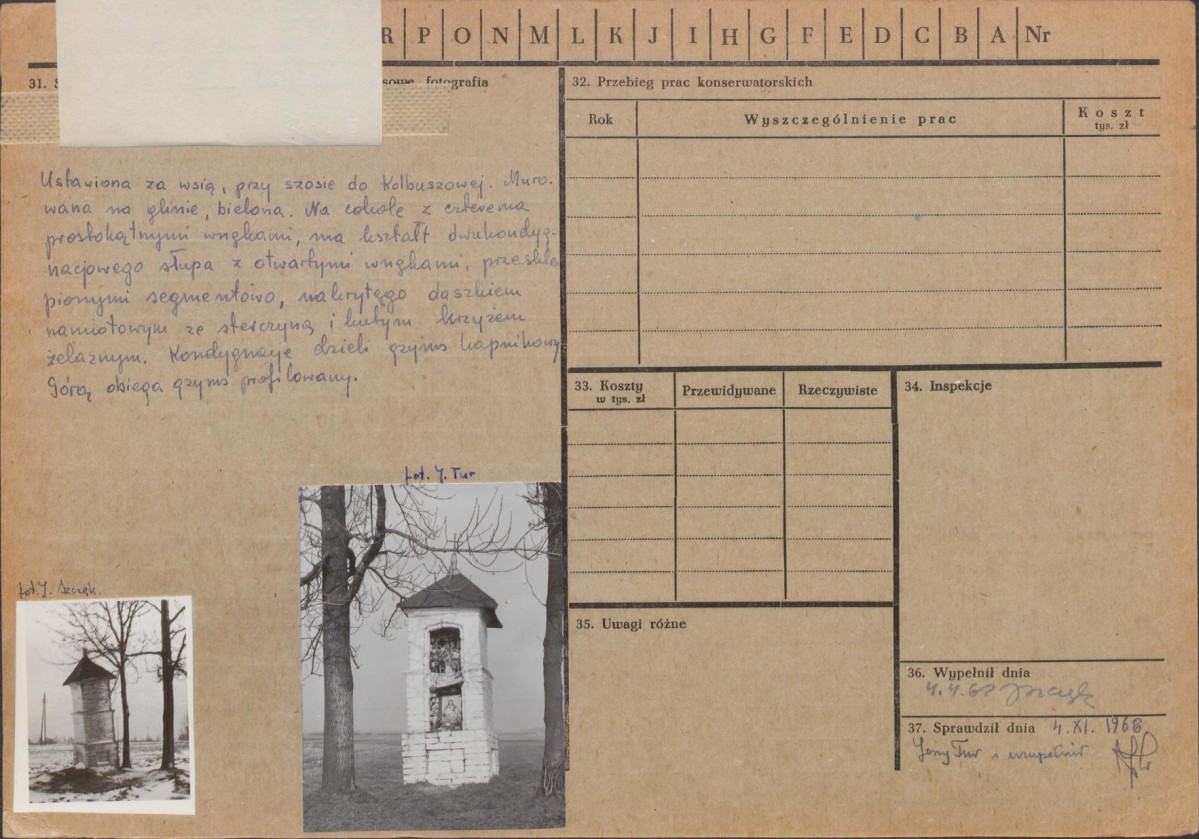 R P O N M L K J I H G F E D C B A Nr
31. S sowe, fotografia
Ustawiona za wsią, przy szosie do Kolbuszowej. Muro-
wana na glinie, bielona. Na cokole z czterema
prostokątnymi wnękami, ma kształt dwukondyg-
nacjowego słupa z otwartymi wnękami, przeskle
pionymi segmentowo, nakrytego daszkiem
namiotowym ze sterczyną i kutym krzyżem
żelaznym. Kondygnacje dzieli gzyms kapnikowy
Górą obiega gzyms profilowany.
fot. J. Tur
fot. J. Szczęk.
32. Przebieg prac konserwatorskich
Rok
Wyszczególnienie prac
Koszt
tys. zł
33. Koszty
w tys. zł
Przewidywane
Rzeczywiste
34. Inspekcje
35. Uwagi różne
36. Wypełnił dnia
37. Sprawdził dnia 4. XI. 1968
Jerzy Tur i uzupełnił